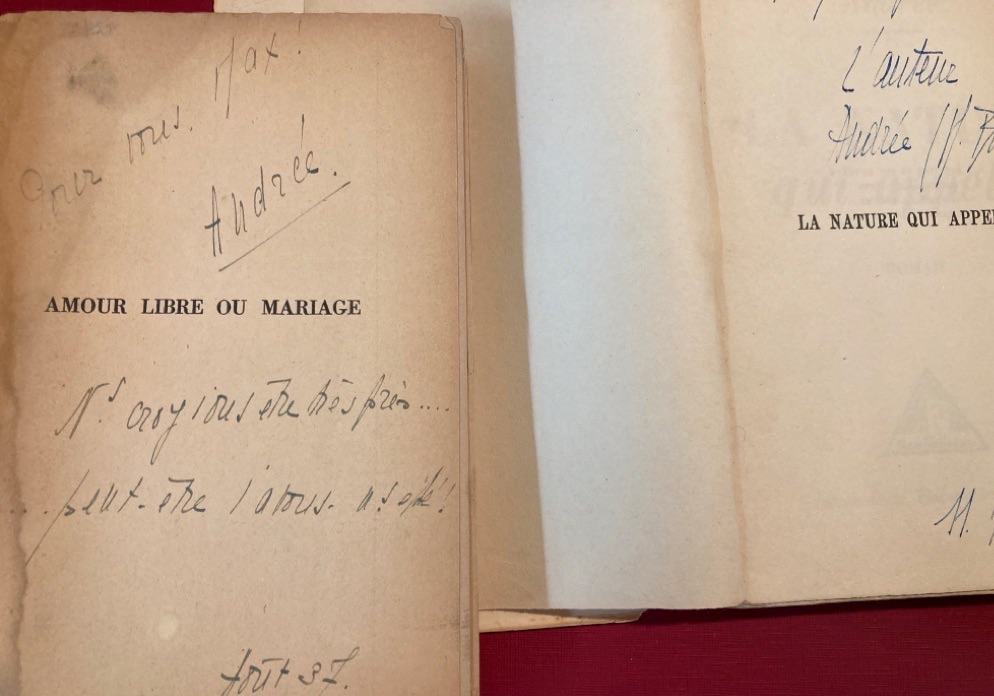 Pour vous. Max!
Andrée.
AMOUR LIBRE OU MARIAGE
Ns croyions être très près....
... peut-être l'avons-ns été!
Août 37.
L'auteur
Andrée
LA NATURE QUI APPE